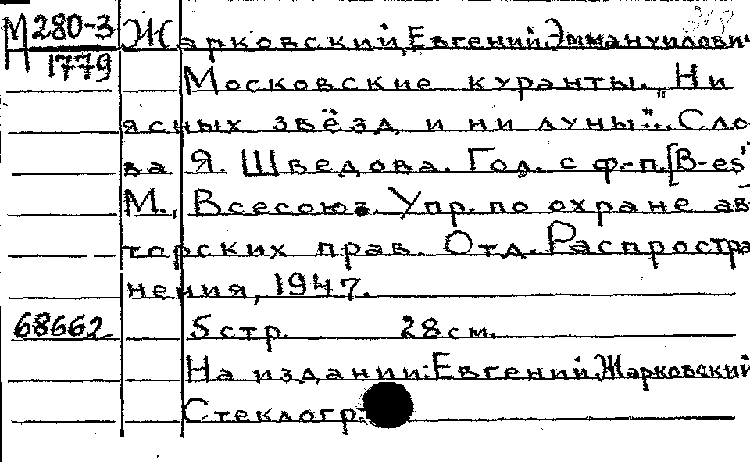 М 280-3 Жарковский, Евгений Эммануилович
Н 1779 Московские куранты. „Ни
ясных звёзд и ни луны"... Сло-
ва Я. Шведова. Гол. с ф.-п. [B-es]
М., Всесоюз. Упр. по охране ав-
торских прав. Отд. Распростра-
нения, 1947.
68662 5 стр. 28 см.
На издании: Евгений Жарковский
Стеклогр.